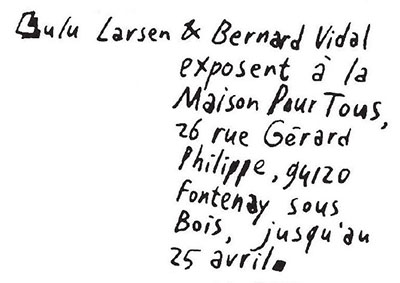 Lulu Larsen & Bernard Vidal
exposent à la
Maison Pour Tous,
26 rue Gérard
Philippe, 94120
Fontenay sous
Bois, jusqu'au
25 avril.